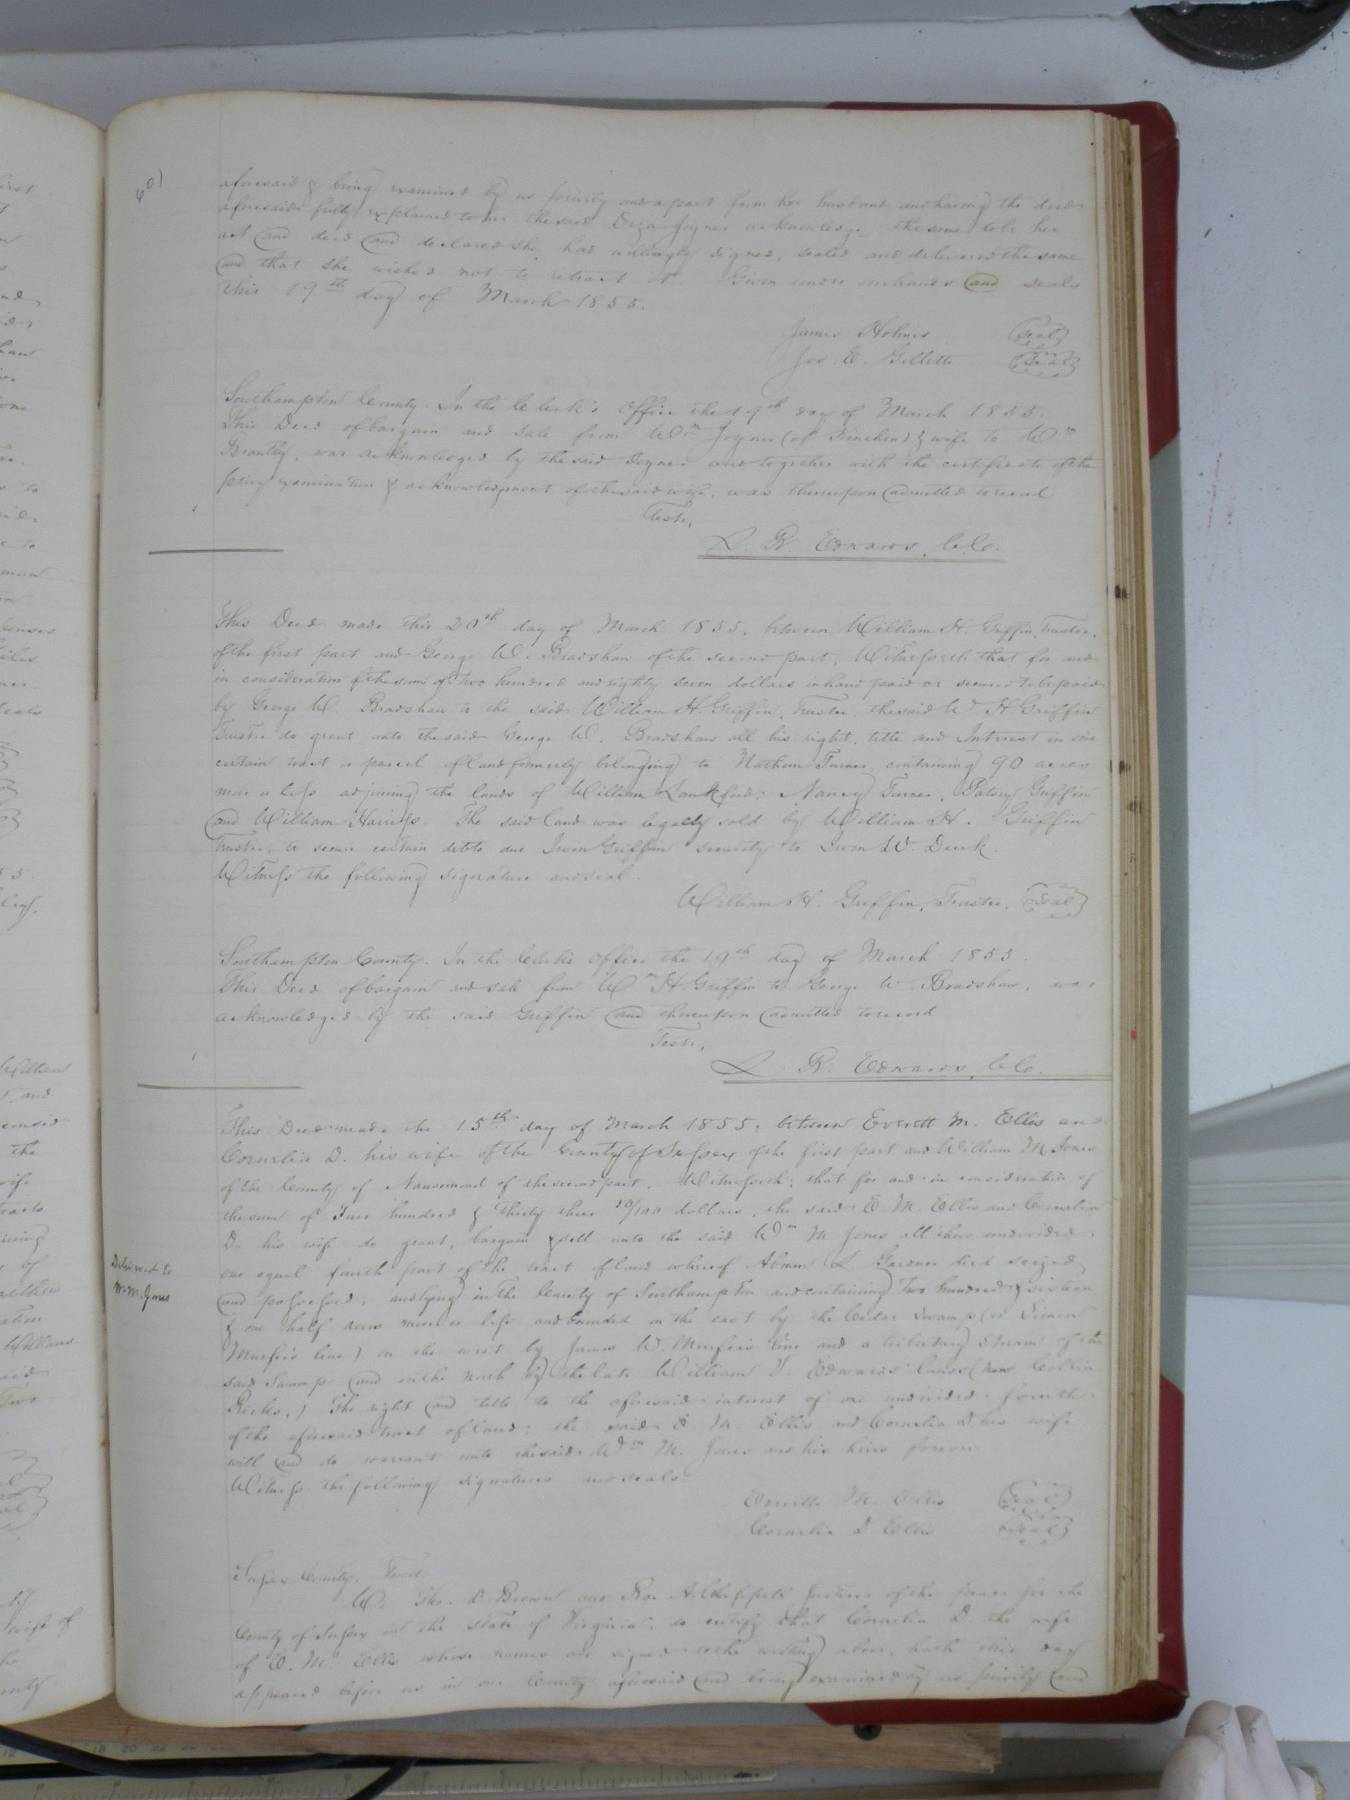 601
aforesaid & being examined by us privily and apart from her husband and having the deed
aforesaid fully explained to her the said Diza Joyner acknowledge the same to be her
act and deed and declared she had willingly signed, sealed and delivered the same
and that she wished not to retract it Given under our hands and seals
this 19th day of March 1855.
James Holmes (Seal)
Jos. E. Gillette (Seal)
Southampton County. In the Clerk's Office the 19th day of March 1855.
This Deed of bargain and sale from Wm Joyner (of Kinchen) & wife to Wm
Brantley, was acknowledged by the said Joyner and together with the certificate of the
privy examination & acknowledgment of the said wife, was thereupon admitted to record
Test.,
L. R. Edwards, C.C.
This Deed made this 20th day of March 1855, between William H. Griffin, Trustee,
of the first part and George W. Bradshaw of the second part, Witnesseth that for and
in consideration of the sum of two hundred and eighty seven dollars in hand paid or secured to be paid
by George W. Bradshaw to the said William H. Griffin, Trustee, the said W H Griffin
Trustee do grant unto the said George W. Bradshaw all his right, title and Interest in one
certain tract or parcel of land formerly belonging to Nathan Turner, containing 90 acres
more or less adjoining the lands of William Lankford, Nancy Turner, Griffin
and William Harriss. The said land was legally sold by William H. Griffin
Trustee, to secure certain debts due Irvin Griffin security to Irvin W. Duck.
Witness the following signature and seal.
William H. Griffin, Trustee, (Seal)
Southampton County. In the Clerks Office the 19th day of March 1855.
This Deed of bargain and sale from Wm H Griffin to George W. Bradshaw, was
acknowledged by the said Griffin and thereupon admitted to record
Test.,
L. R. Edwards, C.C.
This Deed made the 15th day of March 1855, between Everett M. Ellis and
Cornelia D. his wife of the County of Sussex of the first part and William M Jones
of the County of Nansemond of the second part, Witnesseth, that for and in consideration of
the sum of hundred & thirty three 50/100 dollars, the said E. M. Ellis and Cornelia
D. his wife do grant, bargain & sell unto the said Wm M Jones all their undivided
one equal fourth part of the tract of land whereof Abram L Gardner died seized
Delivered to
W. M. Jones
and possessed, and lying in the County of Southampton and containing Two hundred & sixteen
& one half acres more or less and bounded on the east by the Cedar Swamp (or Simon
Murfee's line) on the west by James W. Murfee's line and a tributary stream of the
said Swamp and on the north by the late William Edwards' lands (now Collin
Ricks.) The right and title to the aforesaid interest of one undivided fourth
of the aforesaid tract of land, the said E M. Ellis and Cornelia D his wife
will and do warrant unto the said Wm M. Jones and his heirs forever
Witness the following signatures and seals
Everett M. Ellis (Seal)
Cornelia D Ellis (Seal)
Sussex County, Towit.
We, Tho. D. Brown and Justices of the peace for the
County of Sussex in the State of Virginia, do certify that Cornelia D. the wife
of E. M. Ellis whose names are signed to the writing above, hath this day
appeared before us in our County aforesaid and being examined by us privily and